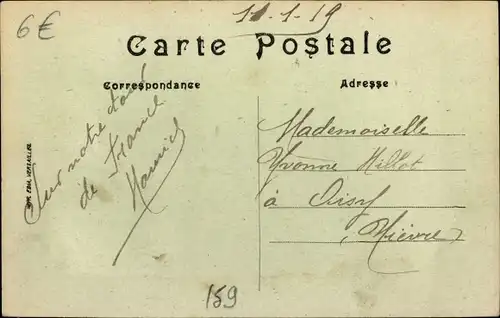 6€
11-1-19
Carte Postale
Correspondance
Adresse
Sur notre
de France
Maurice
Mademoiselle
Yvonne Millot
à Oisy
(Nièvre)
159